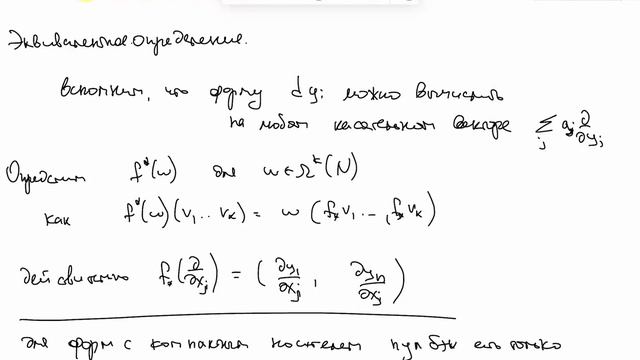 Эквивалентное определение.
вспомним, что форму dyᵢ можно вычислить
на любом касательном векторе ∑_j a_j ∂/∂y_j
Определим f*(ω) для ω ∈ Ω^k(N)
как f*(ω)(v₁..vₖ) = ω(f_*v₁..., f_*vₖ)
действительно f_*(∂/∂x_j) = (∂y₁/∂x_j, ∂yₙ/∂x_j)
для форм с компактным носителем пулбэк есть только